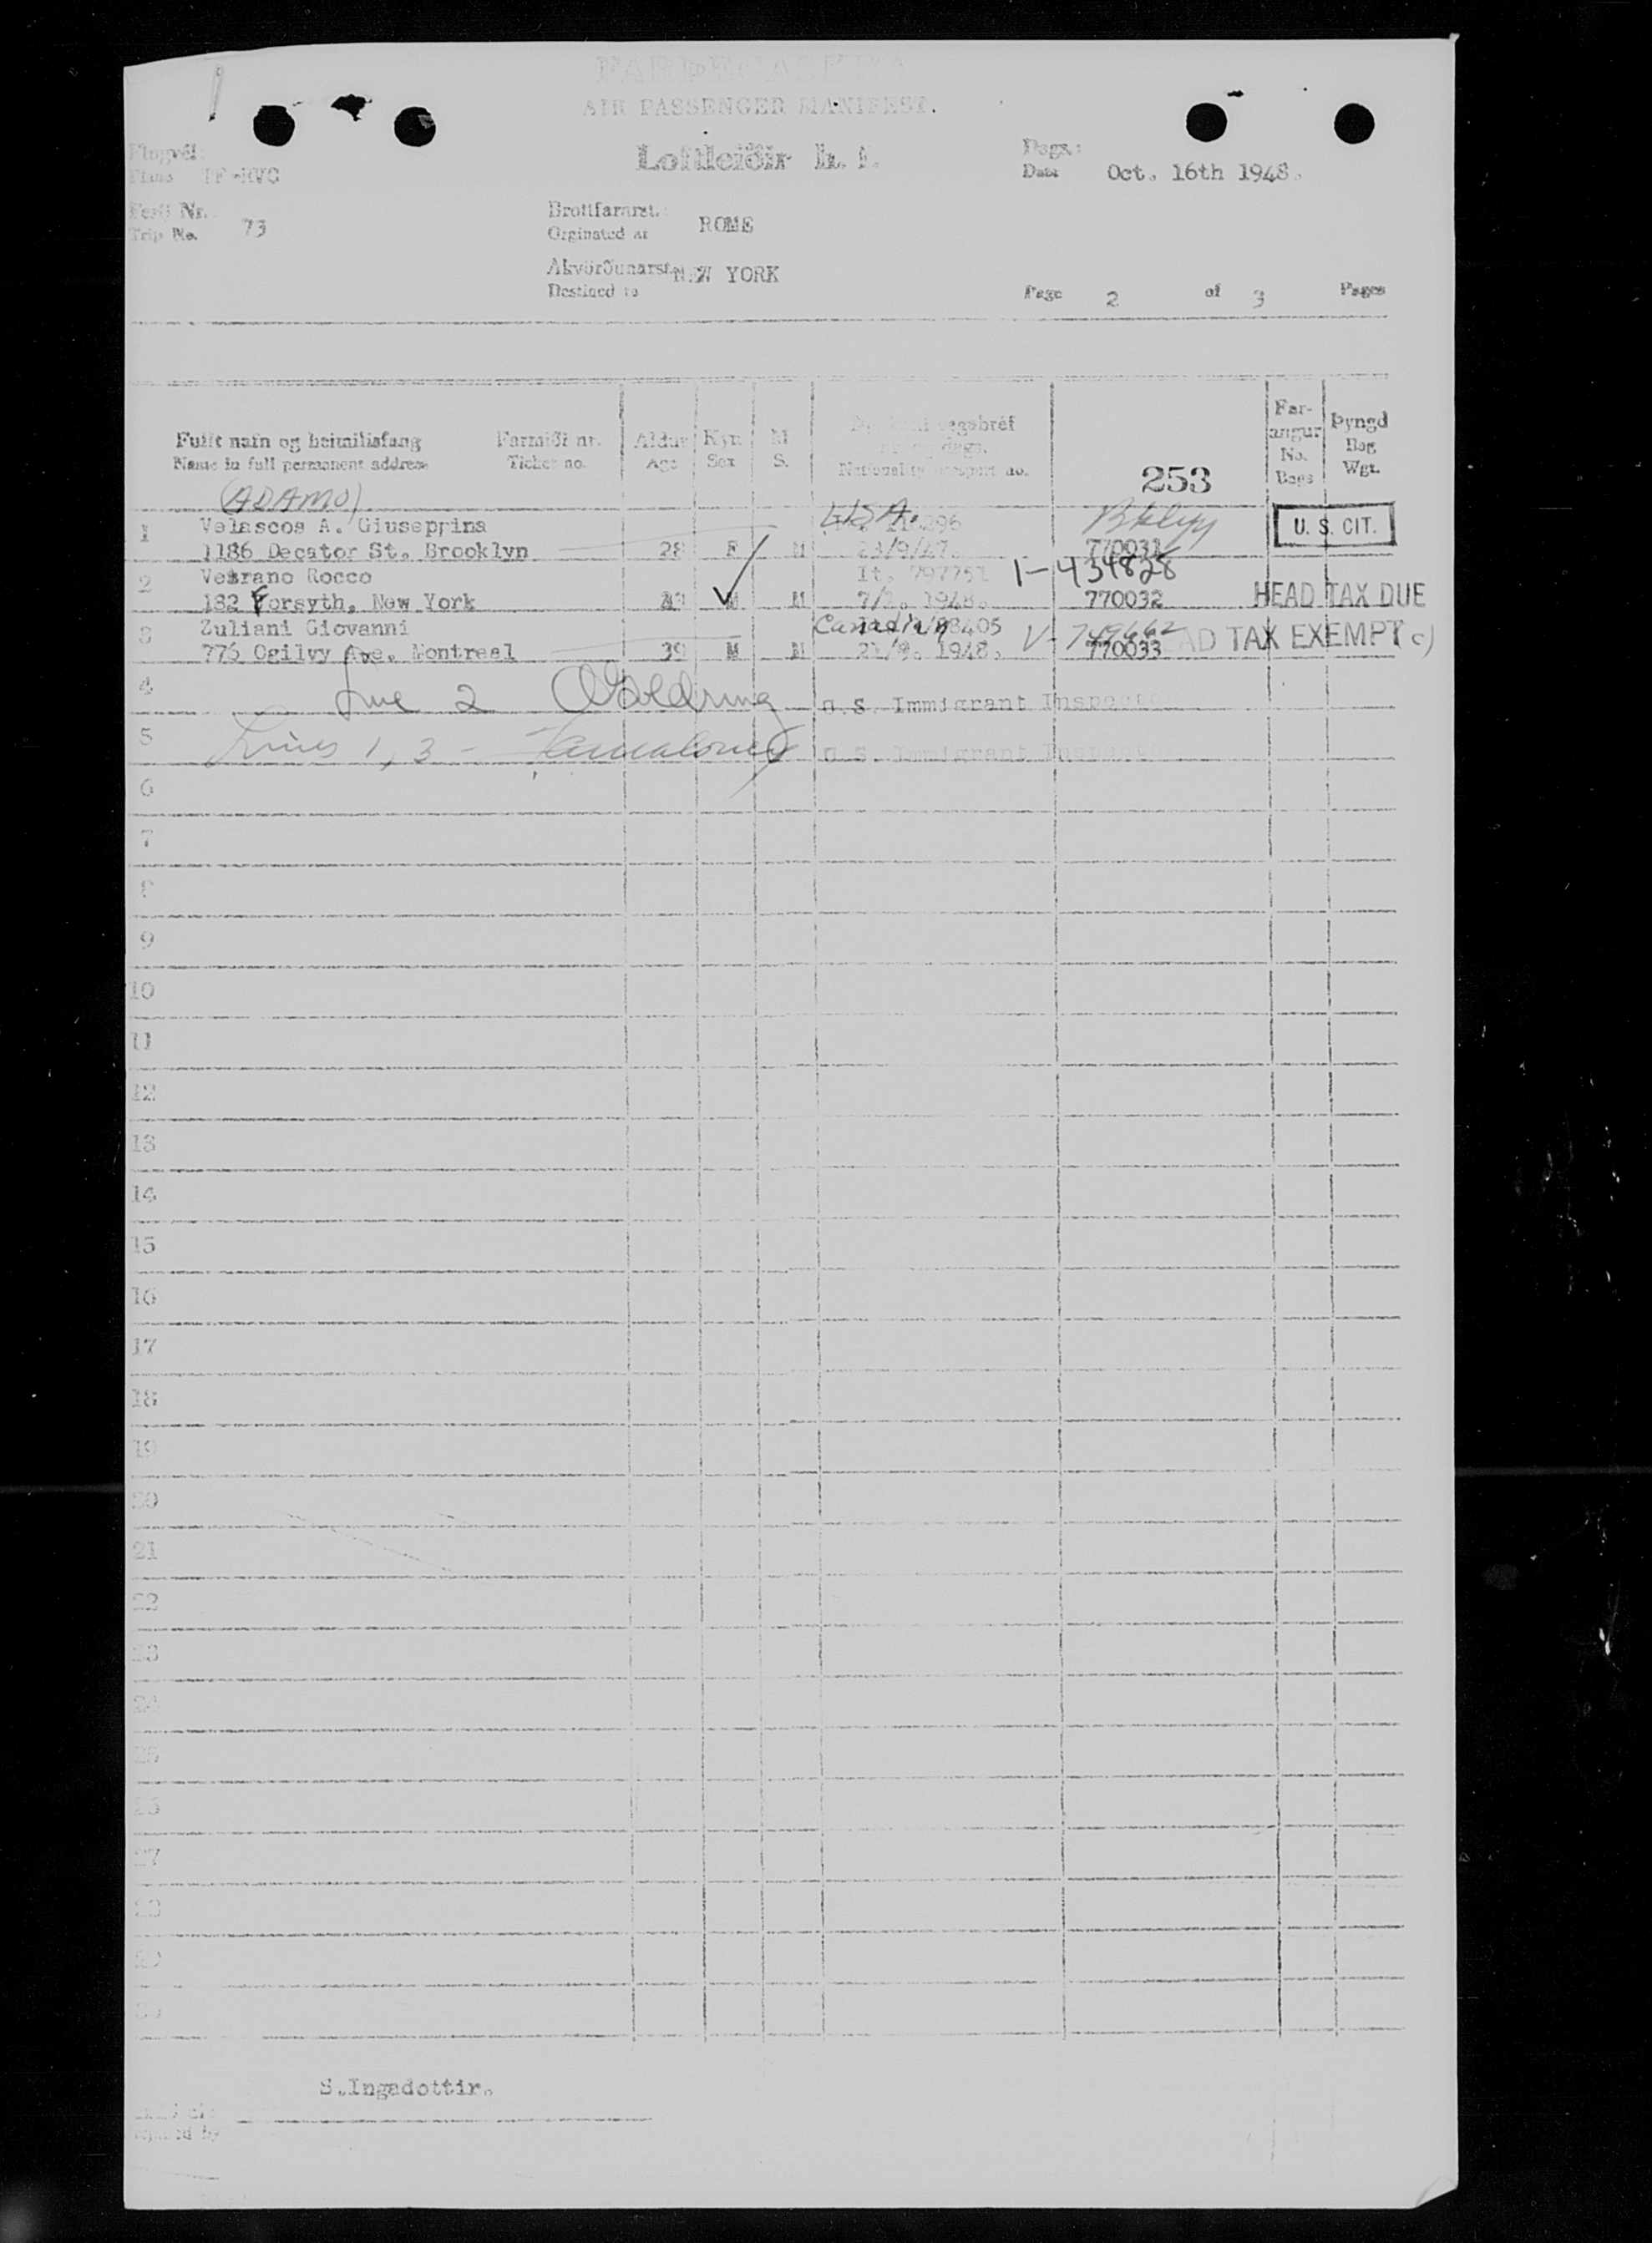 FARÞEGASKRÁ
AIR PASSENGER MANIFEST.
Loftleiðir h.f.
Flugvél:
Plane TF-RVC
Dags.:
Date Oct. 16th 1948.
Ferð Nr.
Trip No. 73
Brottfararst.
Orginated at ROME
Akvörðunarst.
Destined to NEW YORK
Page 2 of 3 Pages
Fullt nafn og heimilisfang Farmiði nr. Aldur Kyn M
Name in full permanent address Ticket no. Age Sex S.
vegabréf
dags.
Nationality no.
253
Far-
angur
No.
Bags
Þyngd
Bag
Wgt.
(ADAMO)
1 Velascos A. Giuseppina USA. Bklyn U. S. CIT.
1186 Decator St. Brooklyn 28 F M 23/9/47. 770031
2 Vetrano Rocco It. 797751 1-434828
182 Forsyth, New York M 1948. 770032 HEAD TAX DUE
3 Zuliani Giovanni Canadian V-749662 HEAD TAX EXEMPT c)
776 Ogilvy Ave. Montreal 39 M M 1948. 770033
4 Line 2 Goldring U.S. Immigrant Inspector
5 Lines 1, 3 - U.S. Immigrant Inspector
6
7
8
9
10
11
12
13
14
15
16
17
18
19
20
21
22
23
24
25
26
27
28
29
30
S.Ingadottir.